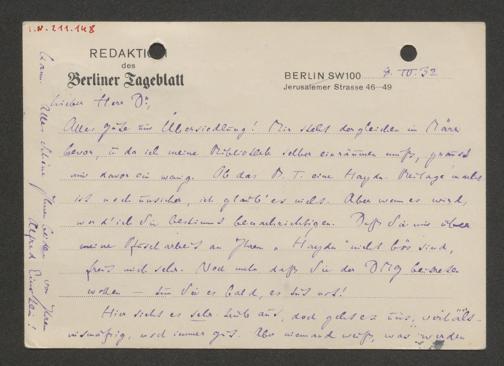 I.N. 211.148
REDAKTION
des
Berliner Tageblatt
BERLIN SW100 9. IV. 32
Jerusalemer Strasse 46-49
Lieber Herr Dr,
Alles Gute zur Übersiedlung! Mir steht dergleichen im März
bevor, u da ich meine Bibliothek selber einräumen muß, graust
mir davor ein wenig. Ob das B. T. eine Haydn-Beilage macht
ist noch unsicher, ich glaub' es nicht. Aber wenn es wird,
werd' ich Sie bestimmt benachrichtigen. Daß Sie mir über
meine Pfuscharbeit an Ihrem "Haydn" nicht bös sind,
freut mich sehr. Noch mehr daß Sie der DMG beitreten
wollen — tun Sie es bald, es tut not!
Hier sieht es sehr trüb aus, doch geht es uns, verhält-
nismäßig, noch immer gut. Aber niemand weiß, was werden
kann. Alles Schöne Ihnen beiden von Ihrem
Alfred Einstein!